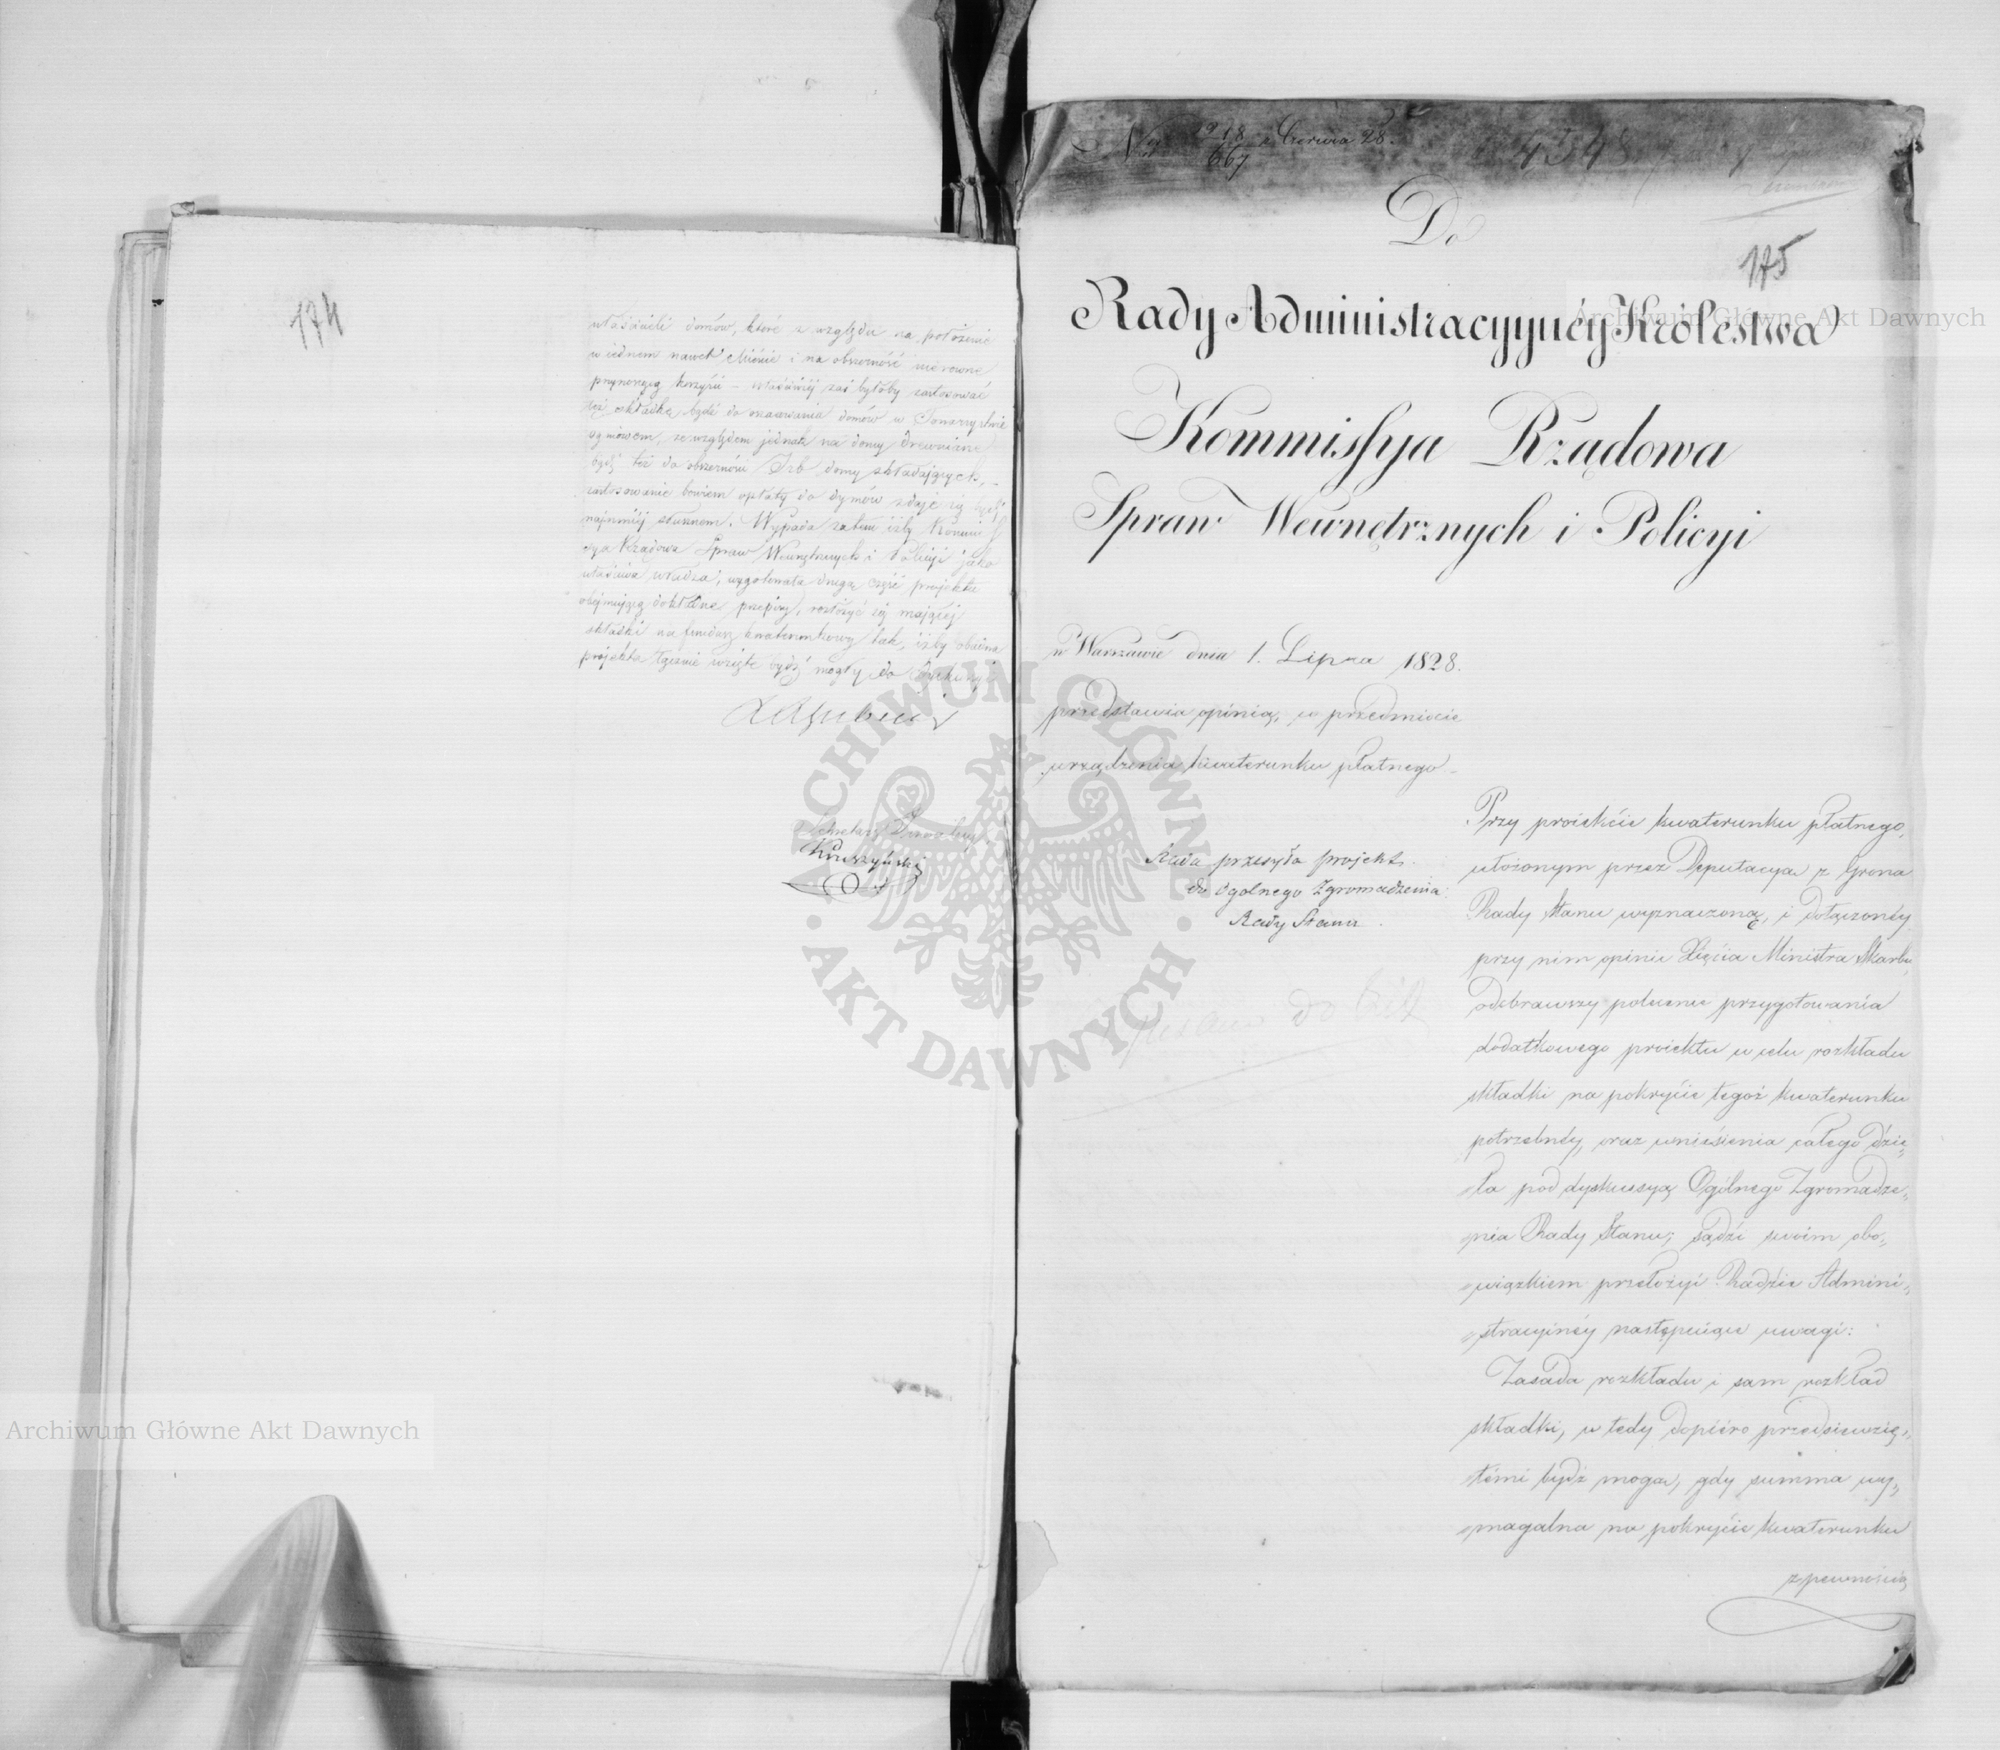 174
właścicieli domów, które z względu na położenie
w jednem nawet Mieście i na obszerność nierówne
przynoszą korzyści – właściwiéj zaś byłoby zastosować
tęż składkę bądź do oszacowania domów w Towarzystwie
Ogniowem, ze względem jednak na domy drewniane
bądź też do obszerności Izb domy składających, –
zastosowanie bowiem opłaty do dymów zdaje się bydź
najmniéj słusznem. Wypada zatem iżby Kommis
sya Rządowa Spraw Wewnętrznych i Policyi jako
właściwa władza, wygotowała drugą część projektu
obejmującą dokładne przepisy, rozłożyć się mającéj
składki na fundusz kwaterunkowy tak, iżby obadwa
projekta łącznie wzięte bydź mogły do dyskusyi
Sekretarz Jeneralny
Kruszyński
1918
667
z Czerwca 28.
4548
175
Do
Rady Administracyynéy Królestwa
Kommissya Rządowa
Spraw Wewnętrznych i Policyi
w Warszawie dnia 1. Lipca 1828.
przedstawia opinią, w przedmiocie
urządzenia kwaterunku płatnego
Rada przesyła projekt
do Ogolnego Zgromadzenia
Rady Stanu
Przy proiekcie kwaterunku płatnego,
ułożonym przez Deputacya z Grona
Rady Stanu wyznaczoną, i dołączonéy
przy nim opinii Xięcia Ministra Skarbu,
odebrawszy polecenie przygotowania
dodatkowego proiektu w celu rozkładu
składki na pokrycie tegoż kwaterunku
potrzebnéy, oraz wniesienia całego dzie„
„ła pod dyskussyą Ogólnego Zgromadze„
„nia Rady Stanu; sądzi swoim obo„
„wiązkiem przełożyć Radzie Admini„
„stracyinéy następuiące uwagi:
Zasada rozkładu i sam rozkład
składki, w tedy dopiéro przedsięwzię„
„témi bydź mogą, gdy summa wy„
„magalna na pokrycie kwaterunku
z pewnością
Archiwum Główne Akt Dawnych
Archiwum Główne Akt Dawnych
ARCHIWUM GŁÓWNE AKT DAWNYCH